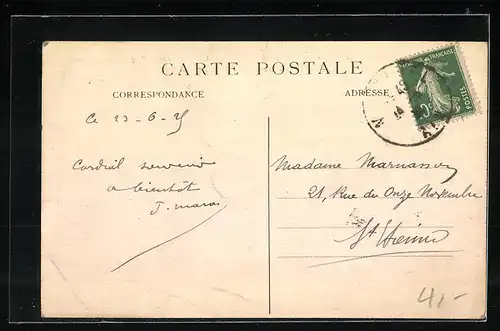 CARTE POSTALE
CORRESPONDANCE
ADRESSE
Ce 23-6-25
Cordial souvenir
a bientôt
J. maras
Madame Marnasson
21, Rue du Onze Novembre
St Etienne
POSTES
5c
41-